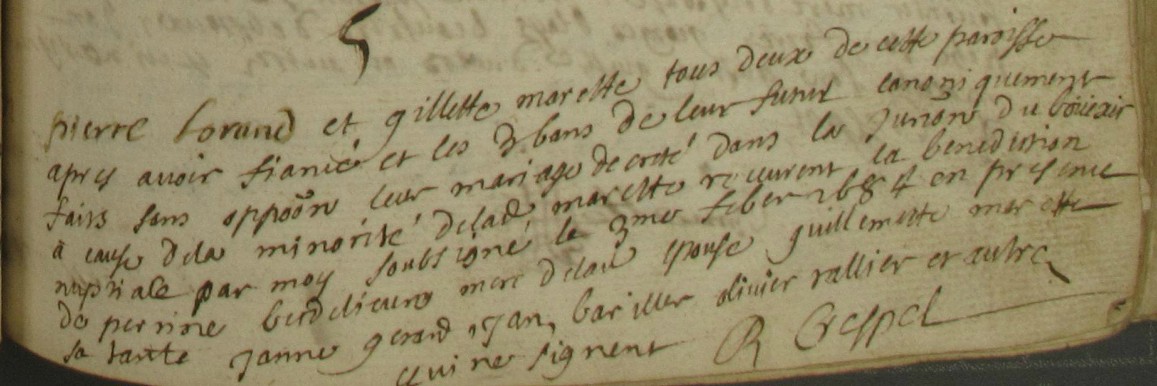 pierre Lorand et gillette marette tous deux de cette paroisse
apres avoir fiancé et les 3 bans de leur futur canoniquement
faits sans oppoôn leur mariage decreté dans la Jurion du boüexic
a cause dela minorité deladᵉ marette receurent la benediction
nuptiale par moy soubsigné le 3me feber 1684 en presence
de perrine berdelieure mere deladᵉ epouse guillemette marette
sa tante Janne gerard, Jan bariller olivier rallier et autre
qui ne signent R Crespel